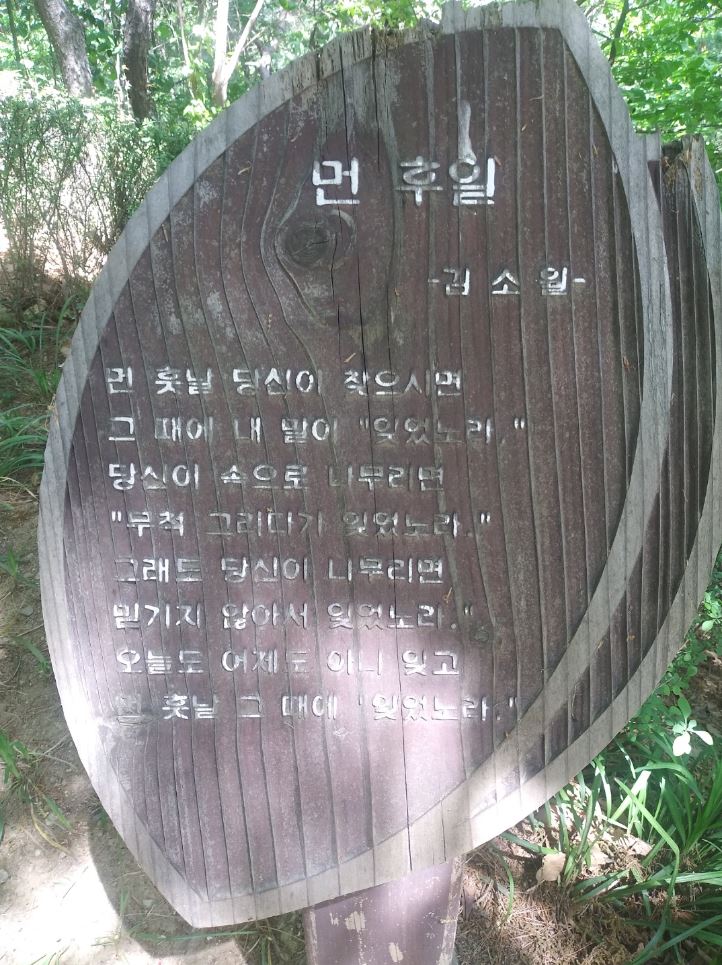 먼 후일
-김 소 월-
먼 훗날 당신이 찾으시면
그 때에 내 말이 "잊었노라."
당신이 속으로 나무리면
"무척 그리다가 잊었노라."
그래도 당신이 나무리면
믿기지 않아서 잊었노라."
오늘도 어제도 아니 잊고
먼 훗날 그 때에 "잊었노라."